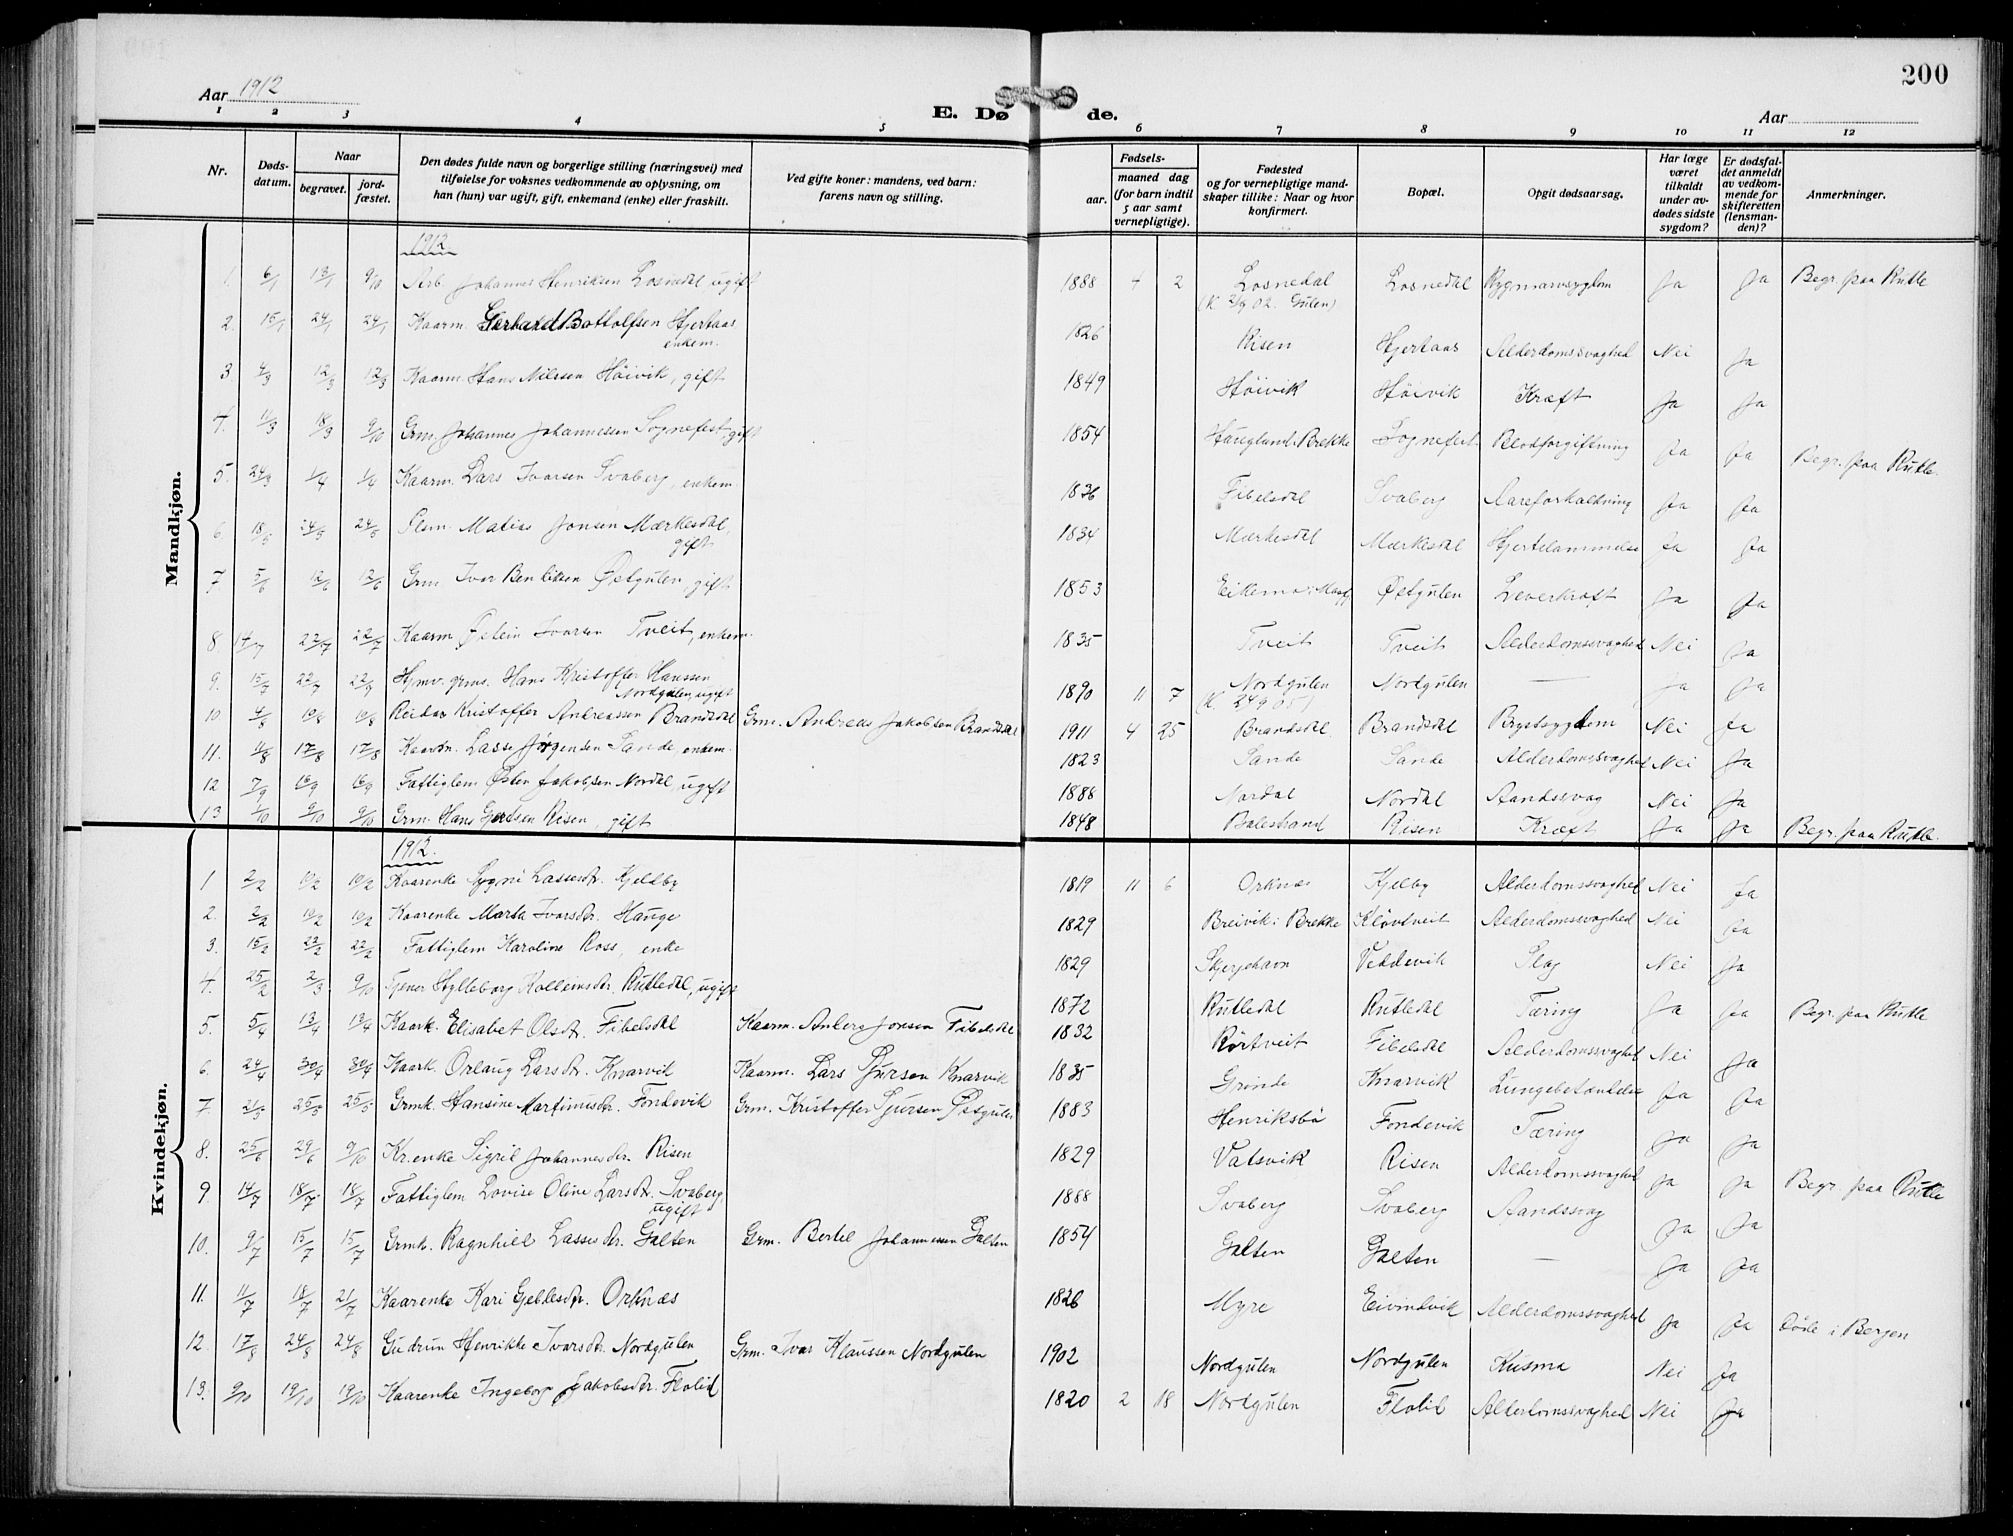 200
Aar 1912
E. Døde.
Aar
1 2 3 4 5 6 7 8 9 10 11 12
Nr.
Døds-datum.
Naar
begravet.
jord-fæstet.
Den dødes fulde navn og borgerlige stilling (næringsvei) med
tilføielse for voksnes vedkommende av oplysning, om
han (hun) var ugift, gift, enkemand (enke) eller fraskilt.
Ved gifte koner: mandens, ved barn:
farens navn og stilling.
Fødsels-
aar.
maaned dag
(for barn indtil
5 aar samt
vernepligtige).
Fødested
og for vernepligtige mand-
skaper tillike: Naar og hvor
konfirmert.
Bopæl.
Opgit dødsaarsag.
Har læge
været
tilkaldt
under av-
dødes sidste
sygdom?
Er dødsfal-
det anmeldt
av vedkom-
mende for
skifteretten
(lensman-
den)?
Anmerkninger.
Mandkjøn.
1912.
1. 6/1 13/1 9/10 Arb. Johannes Henriksen Losnedal, ugift 1888 4 2 Losnedal (K. 2/9 02. Gulen) Losnedal Rygmarvsygdom Ja Ja Begr. paa Rutle
2. 15/1 24/1 24/1 Kaarm. Gerhard Bottolfsen Hjertaas, enkem. 1826 Risen Hjertaas Alderdomssvaghed Nei Ja
3 4/3 12/3 12/3 Kaarm. Hans Nilssen Høivik, gift 1849 Høivik Høivik Kræft Ja Ja
4. 11/3 18/3 9/10 Grm. Johannes Johannessen Sognefest, gift 1854 Haugland, Brekke Sognefest Blodforgiftning Ja Ja Begr. paa Rutle
5. 24/3 1/4 1/4 Kaarm. Lars Ivarsen Svaberg, enkem 1836 Fibelsdal Svaberg Aareforkalkning Ja Ja
6 18/5 24/5 24/5 Plsm. Matias Jonsen Mærkesdal, gift 1834 Mærkesdal Mærkesdal Hjertelammelse Ja Ja
7 5/6 12/6 12/6 Grm. Ivar Bentiksen Østgulen, gift 1853 Eikemo i Østgulen Leverkræft Ja Ja
8. 14/7 22/7 22/7 Kaarm Østein Ivarsen Tveit, enkem. 1835 Tveit Tveit Alderdomssvaghed Nei Ja
9. 15/7 22/7 22/7 Hjmv. grms. Hans Kristoffer Hanssen Nordgulen, ugift 1890 11 7 Nordgulen (K. 24 9 05) Nordgulen — Ja Ja
10. 4/8 10/8 10/8 Reidar Kristoffer Andreassen Brandsdal Grm. Andreas Jakobsen Brandsdal 1911 4 25 Brandsdal Brandsdal Brystsygdom Nei Ja
11. 4/8 17/8 17/8 Kaarm. Lasse Jørgensen Sande, enkem. 1823 Sande Sande Alderdomssvaghed Nei Ja
12 7/9 16/9 16/9 Fattiglem Østen Jakobsen Nordal, ugift 1888 Nordal Nordal Aandssvag Nei Ja
13 1/10 9/10 9/10 Grm. Hans Gjertsen Risen, gift 1848 Balestrand Risen Kræft Ja Ja Begr. paa Rutle.
Kvindekjøn.
1912.
1 2/2 10/2 10/2 Kaarenke Sygni Lassesdr. Kjeldby 1819 11 6 Orknæs Kjelby Alderdomssvaghed Nei Ja
2. 2/2 10/2 10/2 Kaarenke Marta Ivarsdr. Hauge 1829 Breivik i Brekke Kløvtveit Alderdomssvaghed Nei Ja
3. 15/2 22/2 22/2 Fattiglem Karoline Ross, enke 1829 Skjerjehavn Veddevik Slag Nei Ja
4. 25/2 2/3 9/10 Tjener Hylleborg Kolbeinsdr. Rutledal, ugift 1872 Rutledal Rutledal Tæring Ja Ja Begr. paa Rutle
5. 5/4 13/4 13/4 Kaark. Elisabet Olsdr. Fibelsdal Kaarm. Anberg Jonsen Fibelsdal 1832 Rørtveit Fibelsdal Alderdomssvaghed Nei Ja
6. 24/4 30/4 30/4 Kaark. Orlaug Larsdr. Knarvik Kaarm. Lars Sjursen Knarvik 1835 Grinde Knarvik Lungebetændelse Ja Ja
7. 21/5 25/5 25/5 Grmk. Hansine Martinusdr. Fondevik Grm. Kristoffer Sjursen Østgulen 1883 Henriksbø Fondevik Tæring Ja Ja
8. 25/6 29/6 9/10 Kr.enke Sigrid Johannesdr. Risen 1829 Vatsvik Risen Alderdomssvaghed Ja Ja Begr. paa Rutle
9. 14/7 18/7 18/7 Fattiglem Lovise Oline Larsdr. Svaberg, ugift 1888 Svaberg Svaberg Aandssvag Ja Ja
10. 9/7 15/7 15/7 Grmk. Ragnhild Lassesdr. Galten Grm. Bertel Johannessen Galten 1854 Galten Galten — Ja Ja
11. 11/7 18/7 21/7 Kaarenke Kari Gjeldesdr. Orknæs 1826 Myre Eivindvik Alderdomssvaghed Ja Ja Døde i Bergen
12. 17/8 24/8 24/8 Gudrun Henrikke Ivarsdr. Nordgulen Grm. Ivar Klaussen Nordgulen 1902 Nordgulen Nordgulen Kusma Nei Ja
13. 9/10 19/10 19/10 Kaarenke Ingeborg Jakobsdr. Flolid 1820 2 18 Nordgulen Flolid Alderdomssvaghed Nei Ja